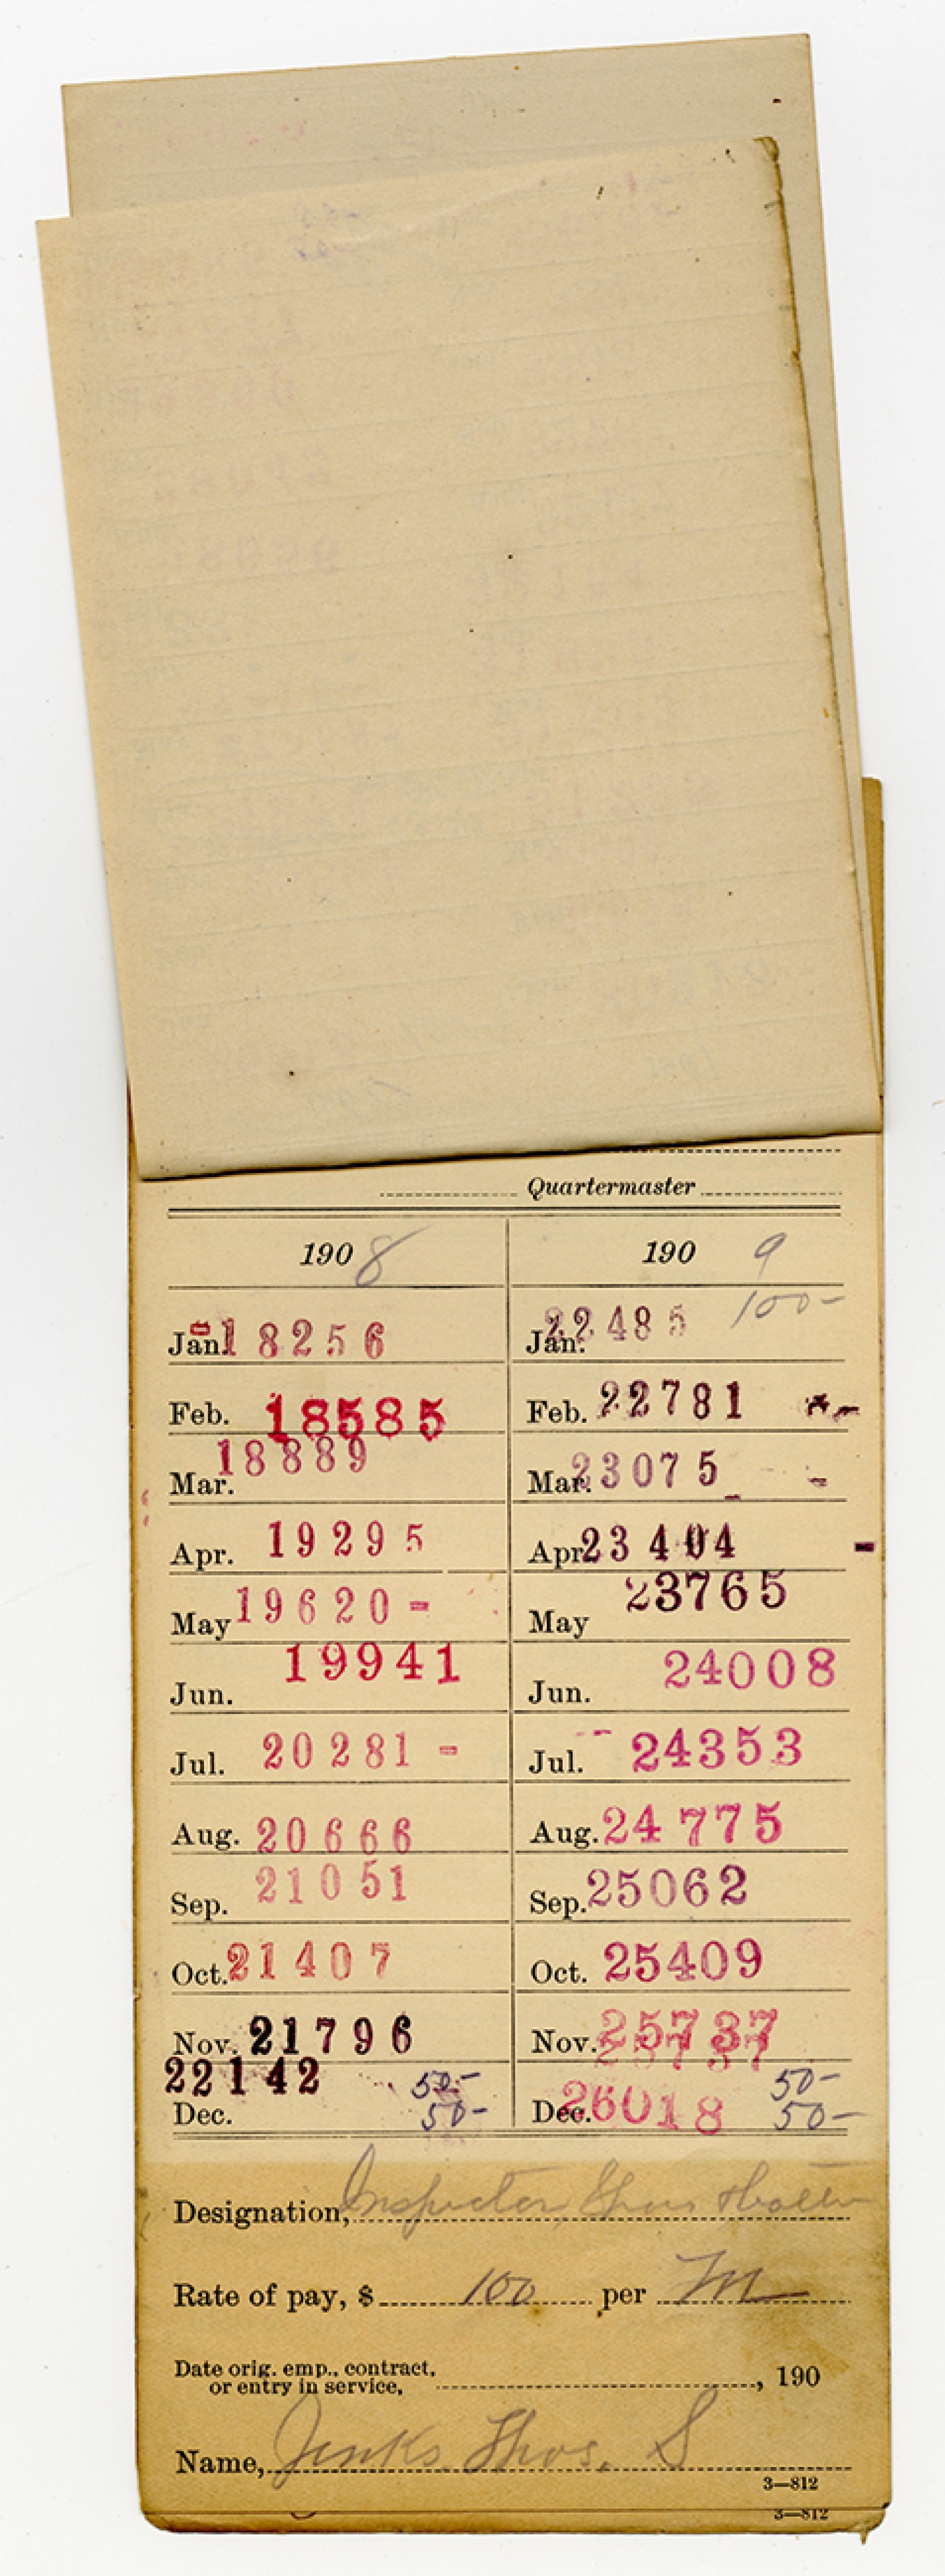 Quartermaster
190 8
Jan. 18256
Feb. 18585
Mar. 18889
Apr. 19295
May 19620 -
Jun. 19941
Jul. 20281 -
Aug. 20666
Sep. 21051
Oct. 21407
Nov. 21796
22142 50-
Dec. 50-
190 9
100-
Jan. 22485
Feb. 22781
Mar. 23075
Apr. 23404 -
May 23765
Jun. 24008
Jul. 24353
Aug. 24775
Sep. 25062
Oct. 25409
Nov. 25737
50-
Dec. 26018 50-
Designation, Inspector
Rate of pay, $ 100 per M
Date orig. emp., contract,
or entry in service, , 190
Name, Jenks, Thos. S
3—812
3—812